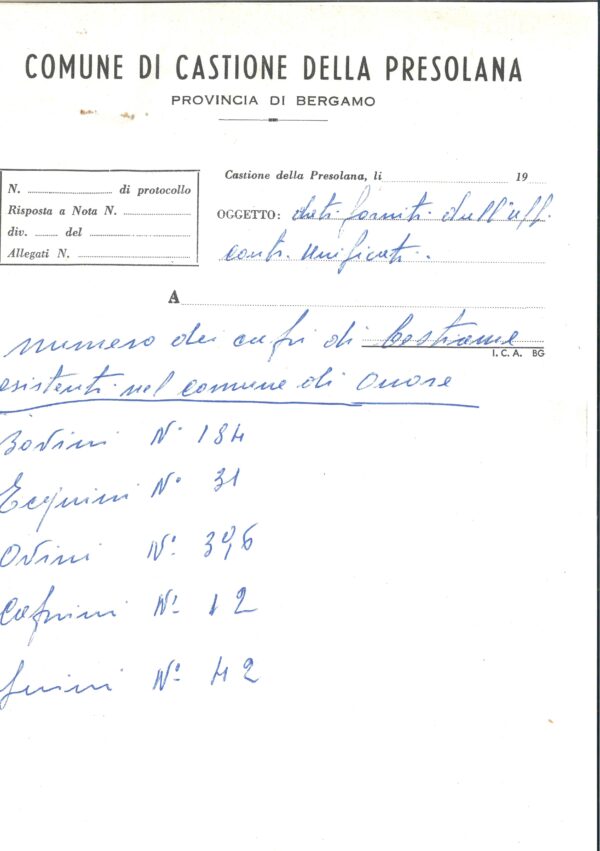 COMUNE DI CASTIONE DELLA PRESOLANA
PROVINCIA DI BERGAMO
N. ........ di protocollo
Risposta a Nota N. ........
div. ........ del ........
Allegati N. ........
Castione della Presolana, li ........ 19 ....
OGGETTO: dati forniti dall'uff.
contr. unificati.
A
I. C. A. BG
numero dei capi di bestiame
esistenti nel comune di Onore
Bovini N° 184
Equini N° 31
Ovini N°
Caprini N° 12
Suini N° 42